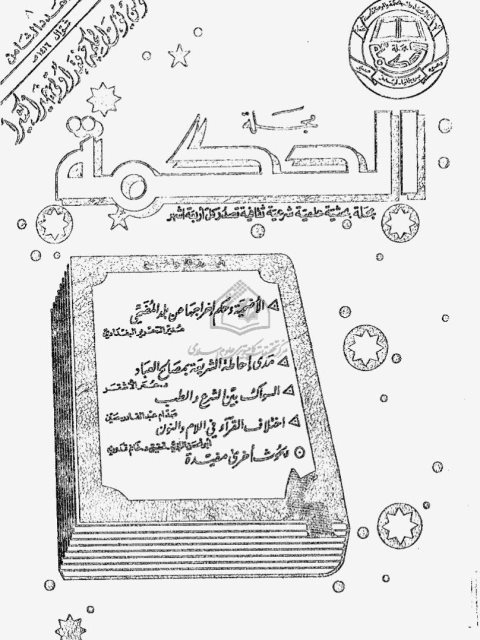 العدد الثامن
شوال ١٤١٦هـ
ومن يؤت الحكمة فقد أوتي خيرا كثيرا
مجلة
الحكمة
مجلة بحثية علمية شرعية ثقافية تصدر كل أربعة أشهر
الأضحية وحكم إخراجها عن بلد المضحي
مدى إحاطة الشريعة بمصالح العباد
د. عمر الأشقر
السواك بين الشرع والطب
اختلاف القراء في اللام والنون
وبحوث أخرى مفيدة